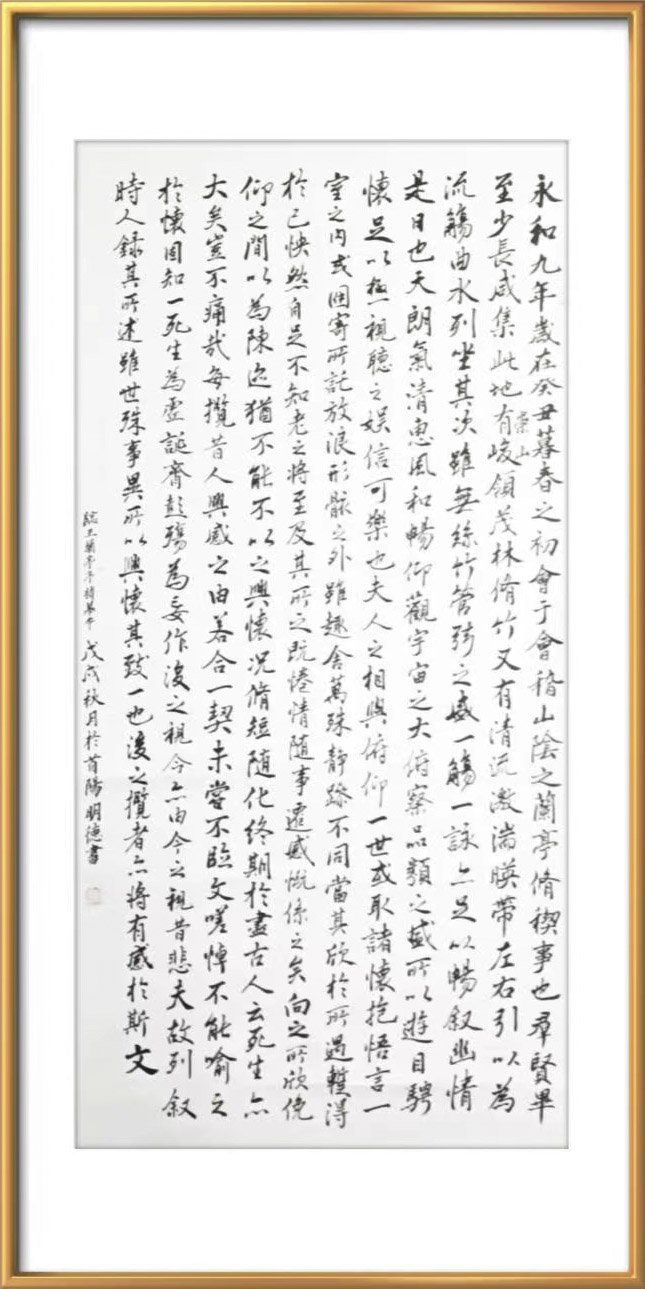 永和九年歲在癸丑暮春之初會于會稽山陰之蘭亭脩稧事也羣賢畢
至少長咸集此地有崇山峻領茂林脩竹又有清流激湍暎帶左右引以為
流觴曲水列坐其次雖無絲竹管弦之盛一觴一詠亦足以暢叙幽情
是日也天朗氣清惠風和暢仰觀宇宙之大俯察品類之盛所以遊目騁
懷足以極視聽之娛信可樂也夫人之相與俯仰一世或取諸懷抱悟言一
室之內或因寄所託放浪形骸之外雖趣舍萬殊靜躁不同當其欣於所遇蹔得
於己怏然自足不知老之將至及其所之既惓情隨事遷感慨係之矣向之所欣俛
仰之間以為陳迹猶不能不以之興懷況脩短隨化終期於盡古人云死生亦
大矣豈不痛哉每攬昔人興感之由若合一契未嘗不臨文嗟悼不能喻之
於懷固知一死生為虛誕齊彭殤為妄作後之視今亦由今之視昔悲夫故列叙
時人錄其所述雖世殊事異所以興懷其致一也後之攬者亦將有感於斯文
臨王蘭亭序 戊戌秋月於首陽明德書